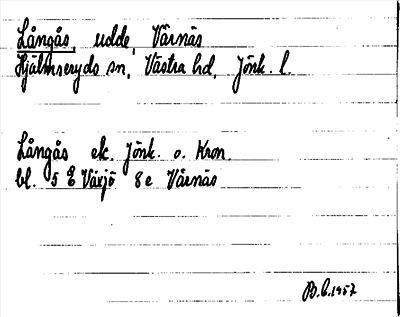 Långås, udde, Värnäs
Hjälmseryds sn, Västra hd, Jönk. l.
Långås ek. Jönk. o. Kron.
bl. 5 E Växjö 8e Värnäs
B.C. 1957